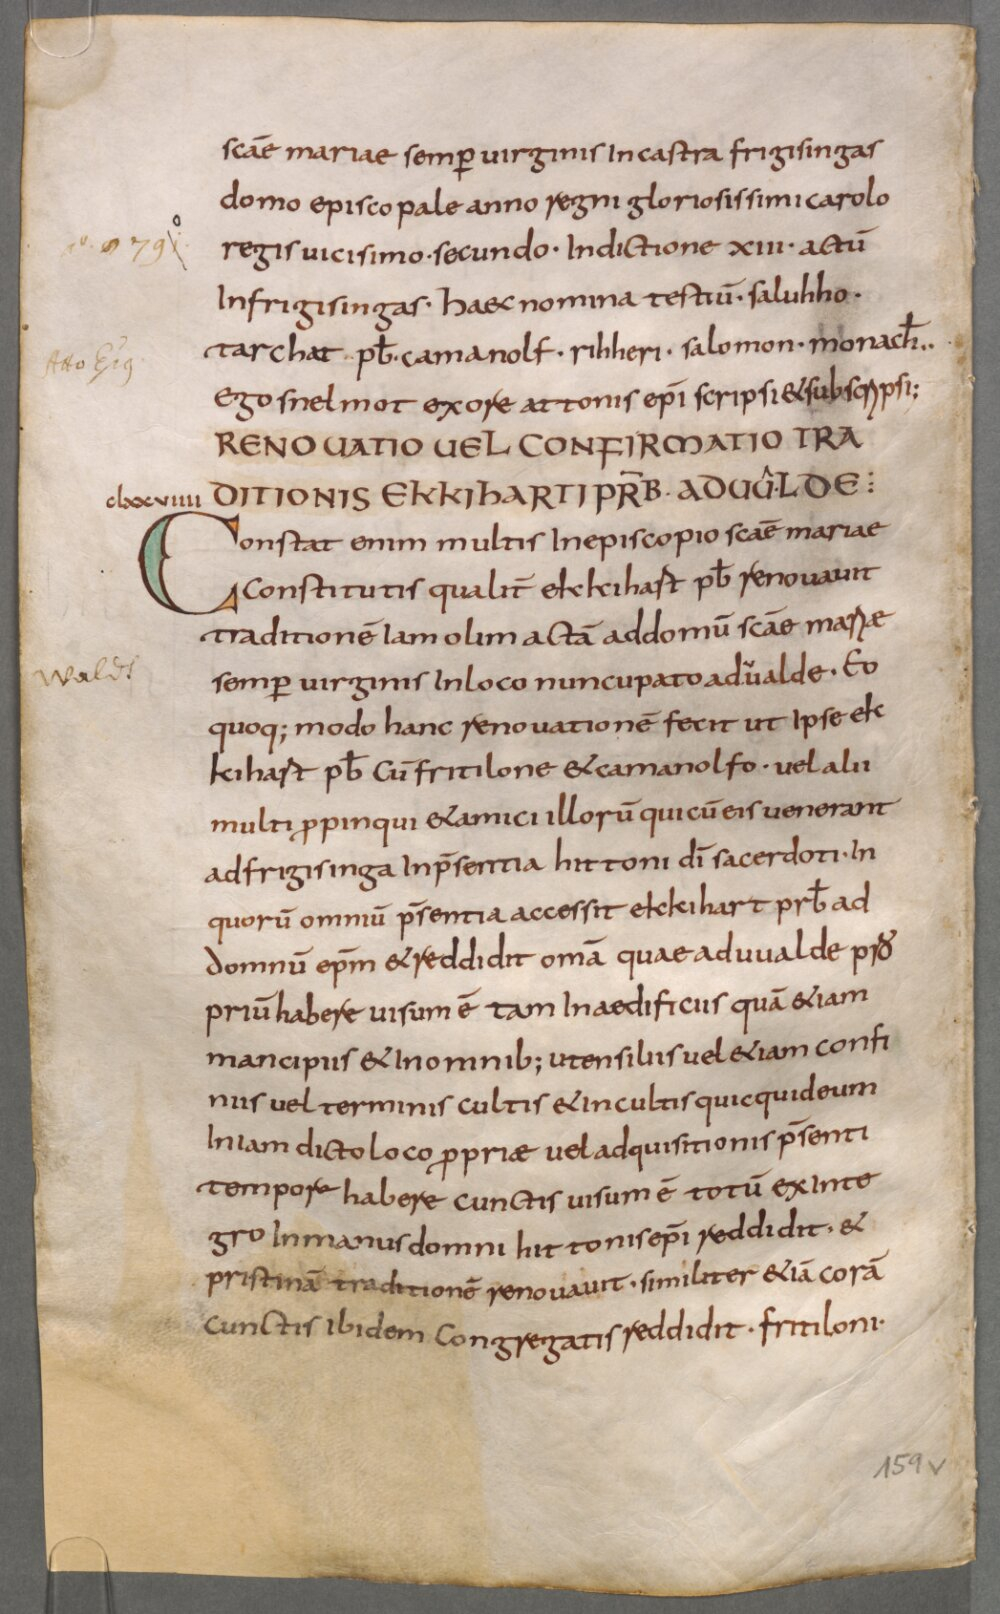 scāe mariae semp̄ uirginis In castra frigisingas
domo episcopale anno regni gloriosissimi carolo
regis uicisimo · secundo · Indictione xiii · actū
Infrigisingas · haec nomina testiū · saluhho ·
tarchat · pb̄ · camanolf · rihheri · salomon · monach̄ ··
Ego snelmot ex ore attonis ep̄i scripsi & subscripsi;
RENOUATIO UEL CONFIRMATIO TRA
clxxviiii DITIONIS EKKIHARTI PR̄B · AD UUALDE :
Constat enim multis In episcopio scāe mariae
Constitutis qualit̄ ekkihart pb̄ renouauit
traditionē Iam olim actā ad domū scāe mariæ
semp̄ uirginis In loco nuncupato ad uualde · Eo
quoq; modo hanc renouationē fecit ut Ipse ek
kihart pb̄ Cū fritilone & camanolfo · uel alii
multi ꝓpinqui & amici illorū qui cū eis uenerant
ad frigisinga In p̄sentia hittoni dī sacerdoti · In
quorū omniū p̄sentia accessit ekkihart prb̄ ad
domnū ep̄m & reddidit omā quae ad uualde pro
priū habere uisum ē tam In aedificiis quā & iam
mancipiis & In omnib; utensiliis uel & iam confi
niis uel terminis cultis & in cultis quicquid eum
In iam dicto loco ꝓpriæ uel adquisitionis p̄senti
tempore habere cunctis uisum ē totū ex Inte
gro In manus domni hittonis ep̄i reddidit · &
pristinā traditionē renouauit · similiter & iā corā
cunctis Ibidem Congregatis reddidit · fritiloni ·
Walds
159v